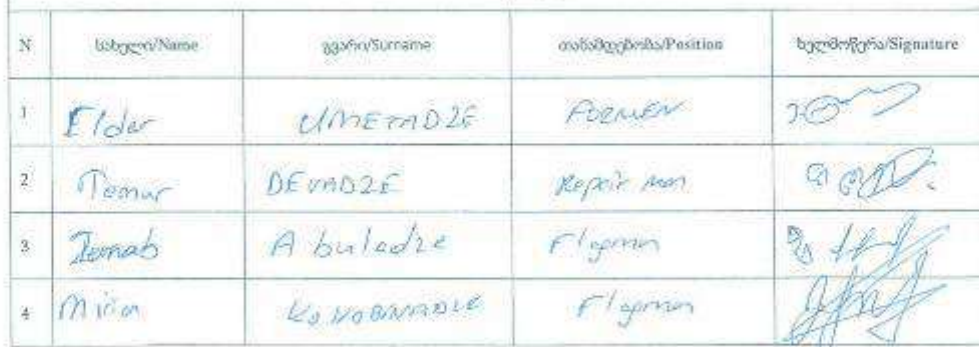 N სახელი/Name გვარი/Surname თანამდებობა/Position ხელმოწერა/Signature
1 Eldar UMETADZE FORMEN
2 Temur DEVADZE Repair man
3 Abuladze Flagman
4 Mirian Flagman